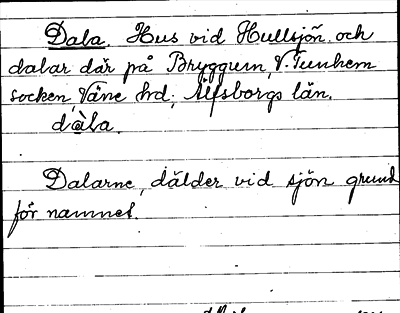 Dala. Hus vid Hullsjön och
dalar där på Bryggum, V. Tunhem
socken, Väne hd, Älfsborgs län.
dàla.
Dalarne, dälder vid sjön grund
för namnet.